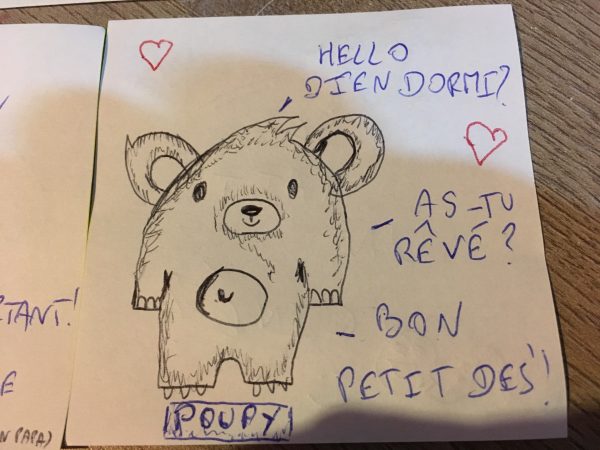 HELLO
BIEN DORMI?
- AS-TU
RÊVÉ?
- BON
PETIT DEJ!
POUPY
TANT!
E
N PAPA)